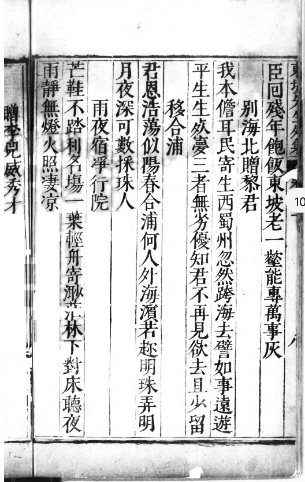 臣回殘年飽飯東坡老一壑能專萬事灰
別海北贈黎君
我本儋耳民寄生西蜀州忽然跨海去譬如事遠遊
平生生死夢三者無劣優知君不再見欲去且少留
移合浦
君恩浩蕩似陽春合浦何人外海濱若趂明珠弄明
月夜深可數採珠人
雨夜宿淨行院
芒鞋不踏利名場一葉輕舟寄渺茫林下對床聽夜
雨靜無燈火照凄凉
贈李兕威秀才
10